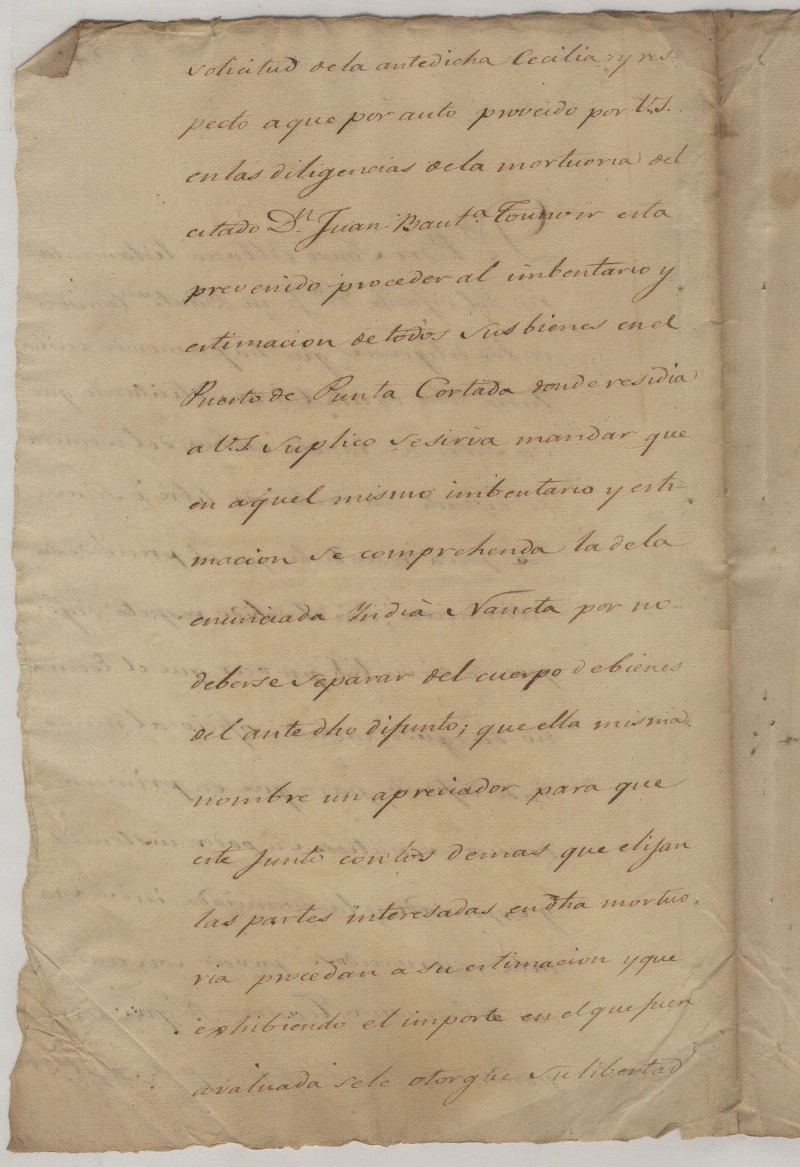 solicitud de la antedicha Cecilia: y res-
pecto a que por auto proveido por V.S.
en las diligencias de la mortuoria del
citado Dn. Juan Baut.a Tounoir esta
prevenido proceder al imbentario y
estimacion de todos sus bienes en el
Puerto de Punta Cortada donde residia
a V.S. suplico se sirva mandar que
en aquel mismo imbentario y esti-
macion se comprehenda la de la
enunciada Yndia Naneta por no
deberse separar del cuerpo de bienes
del antedho difunto; que ella misma
nombre un apreciador para que
este junto con los demas que elijan
las partes interesadas en dha mortuo-
ria procedan a su estimacion y que
exhibiendo el importe en el que fuere
avaluada se le otorgue su libertad